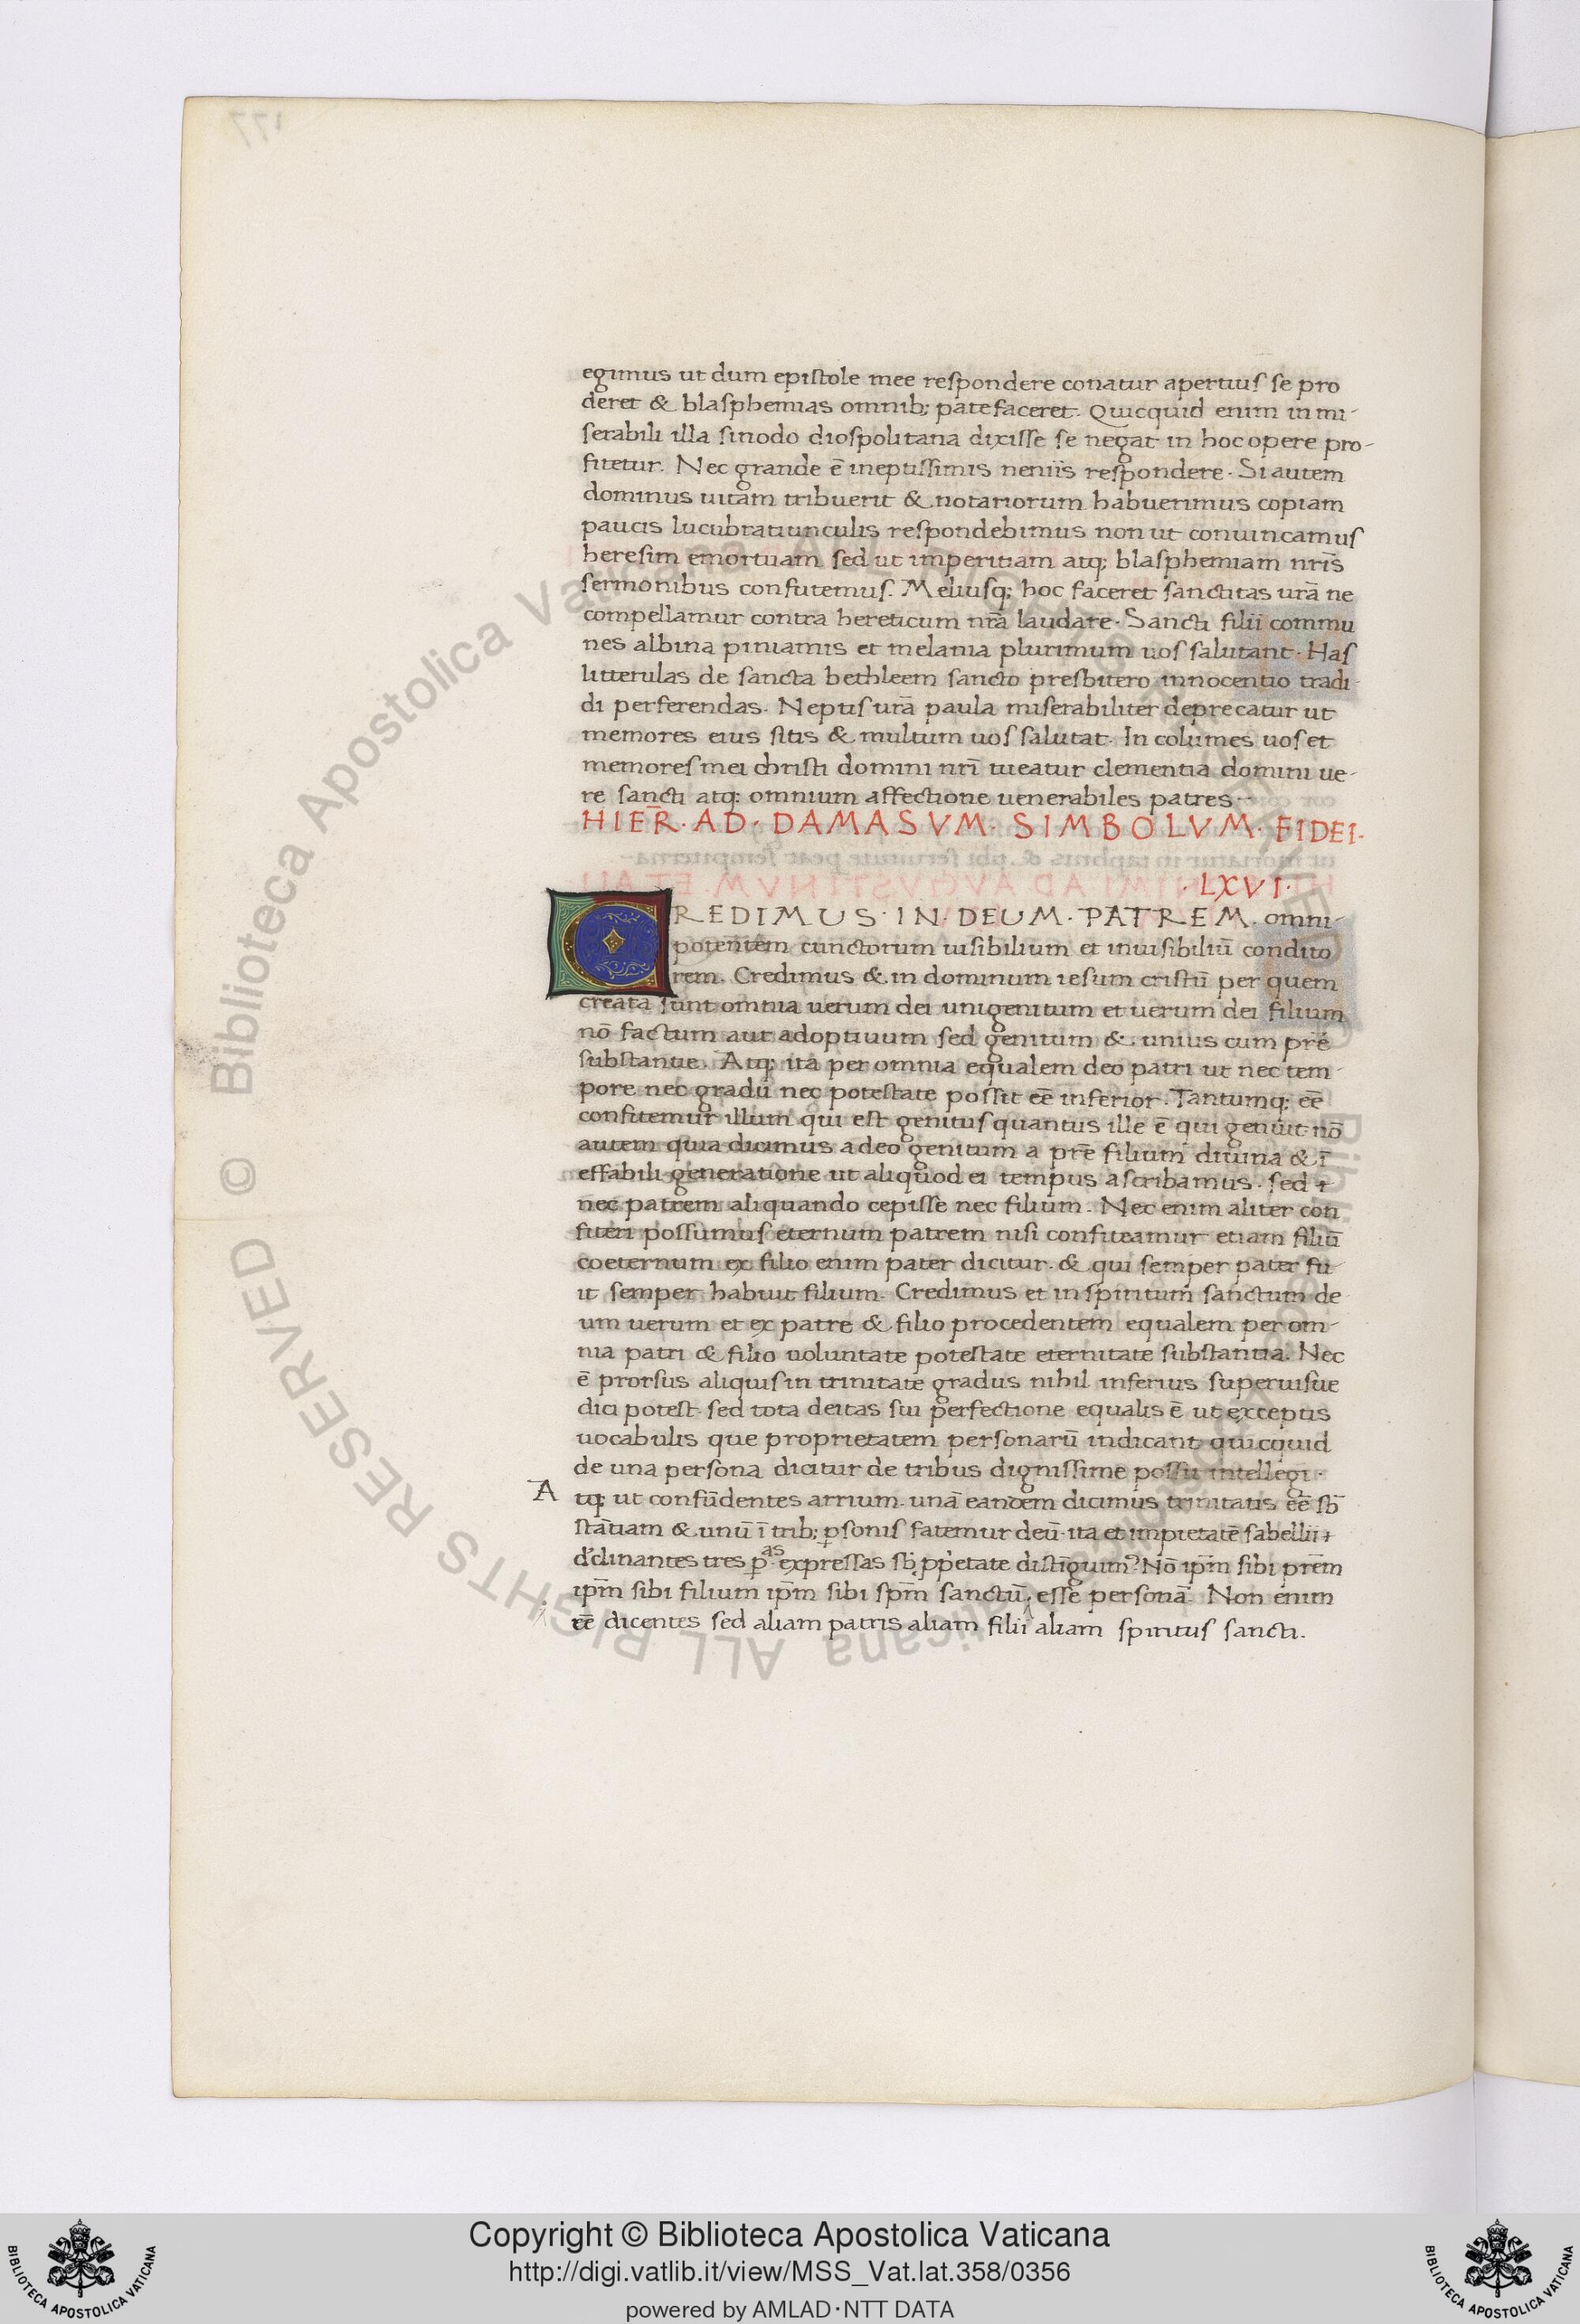 egimus ut dum epistole mee respondere conatur apertius se pro
deret & blasphemias omnib; patefaceret. Quicquid enim in mi-
serabili illa sinodo diospolitana dixisse se negat in hoc opere pro-
fitetur. Nec grande ē ineptissimis neniis respondere. Si autem
dominus uitam tribuerit & notariorum habuerimus copiam
paucis lucubratiunculis respondebimus non ut conuincamus
heresim emortuam sed ut imperitiam atq; blasphemiam nr̄is
sermonibus confutemus. Meliusq; hoc faceret sanctitas urā ne
compellamur contra hereticum nrā laudare. Sancti filii commu
nes albina piniamis et melania plurimum uos salutant. Has
litterulas de sancta bethleem sancto presbitero innocentio tradi-
di perferendas. Neptis urā paula miserabiliter deprecatur ut
memores eius sitis & multum uos salutat. In columes uos et
memores mei christi domini nrī tueatur clementia domini ue-
re sancti atq: omnium affectione uenerabiles patres–
HIER̄. AD. DAMASVM. SIMBOLVM. FIDEI.
.LXVI.
CREDIMUS. IN. DEUM. PATREM. omni-
potentem cunctorum uisibilium et inuisibiliū condito
rem. Credimus & in dominum iesum cristū per quem
creata sunt omnia uerum dei unigenitum et uerum dei filium
nō factum aut adoptiuum sed genitum & unius cum prē
substantie. Atq; ita per omnia equalem deo patri ut nec tem-
pore nec gradu nec potestate possit eē inferior. Tantumq; eē
confitemur illum qui est genitus quantus ille ē qui genuit. nō
autem quia dicimus a deo genitum a prē filium diuina & ī
effabili generatione ut aliquod ei tempus ascribamus. sed
nec patrem aliquando cepisse nec filium. Nec enim aliter con
fiteri possumus eternum patrem nisi confiteamur etiam filiū
coeternum ex filio enim pater dicitur. & qui semper pater fu-
it semper habuit filium. Credimus et in spiritum sanctum de
um uerum et ex patre & filio procedentem equalem per om-
nia patri & filio uoluntate potestate eternitate substantia. Nec
ē prorsus aliquis in trinitate gradus nihil inferius superiusue
dici potest. sed tota deitas sui perfectione equalis ē ut exceptis
uocabulis que proprietatem personarū indicant quicquid
de una persona dicitur de tribus dignissime possit intellegi.
A tq; ut confūdentes arrium. unā eandem dicimus trinitatis eē sb̄
stātiam & unū ī trib; ꝑsonis fatemur deū. ita et impietatē sabellii
declinantes tres ꝑas expressas sb ꝓpetate distīguimꝰ. Nō ipm̄ sibi prēm
ipm̄ sibi filium ipm̄ sibi spm̄ sanctū. esse personā. Non enim
eē dicentes sed aliam patris aliam filii aliam spiritus sancti.
Biblioteca Apostolica Vaticana ALL RIGHTS RESERVED ©
Copyright © Biblioteca Apostolica Vaticana
http://digi.vatlib.it/view/MSS_Vat.lat.358/0356
powered by AMLAD·NTT DATA
BIBLIOTECA APOSTOLICA VATICANA
BIBLIOTECA APOSTOLICA VATICANA